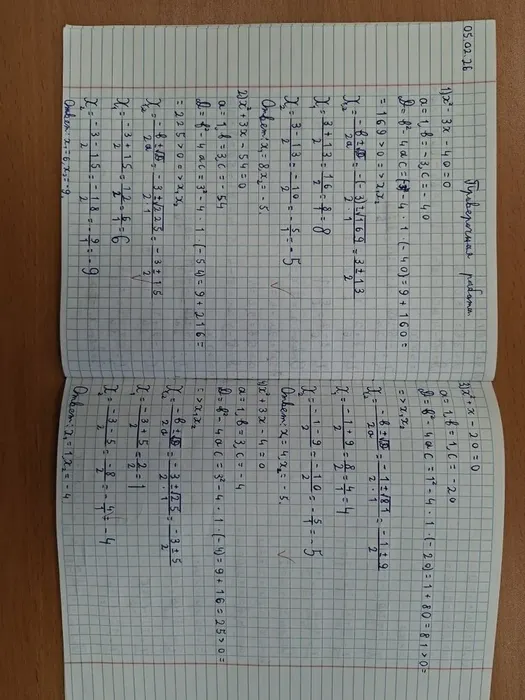 05.02.26
Проверочная работа.
1) x² - 3x - 40 = 0
a = 1, b = -3, c = -40
D = b² - 4ac = (-3)² - 4 · 1 · (-40) = 9 + 160 =
= 169 > 0 => x₁x₂
x₁,₂ = (-b ± √D)/2a = (-(-3) ± √169)/(2 · 1) = (3 ± 13)/2
x₁ = (3 + 13)/2 = 16/2 = 8/1 = 8
x₂ = (3 - 13)/2 = -10/2 = -5/1 = -5
Ответ: x₁ = 8, x₂ = -5.
2) x² + 3x - 54 = 0
a = 1, b = 3, c = -54
D = b² - 4ac = 3² - 4 · 1 · (-54) = 9 + 216 =
= 225 > 0 => x₁x₂
x₁,₂ = (-b ± √D)/2a = (-3 ± √225)/(2 · 1) = (-3 ± 15)/2
x₁ = (-3 + 15)/2 = 12/2 = 6/1 = 6
x₂ = (-3 - 15)/2 = -18/2 = -9/1 = -9
Ответ: x₁ = 6, x₂ = -9.
3) x² + x - 20 = 0
a = 1, b = 1, c = -20
D = b² - 4ac = 1² - 4 · 1 · (-20) = 1 + 80 = 81 > 0 =
= > x₁x₂
x₁,₂ = (-b ± √D)/2a = (-1 ± √81)/(2 · 1) = (-1 ± 9)/2
x₁ = (-1 + 9)/2 = 8/2 = 4/1 = 4
x₂ = (-1 - 9)/2 = -10/2 = -5/1 = -5
Ответ: x₁ = 4, x₂ = -5.
4) x² + 3x - 4 = 0
a = 1, b = 3, c = -4
D = b² - 4ac = 3² - 4 · 1 · (-4) = 9 + 16 = 25 > 0 =
= > x₁x₂
x₁,₂ = (-b ± √D)/2a = (-3 ± √25)/(2 · 1) = (-3 ± 5)/2
x₁ = (-3 + 5)/2 = 2/2 = 1
x₂ = (-3 - 5)/2 = -8/2 = -4/1 = -4
Ответ: x₁ = 1, x₂ = -4.